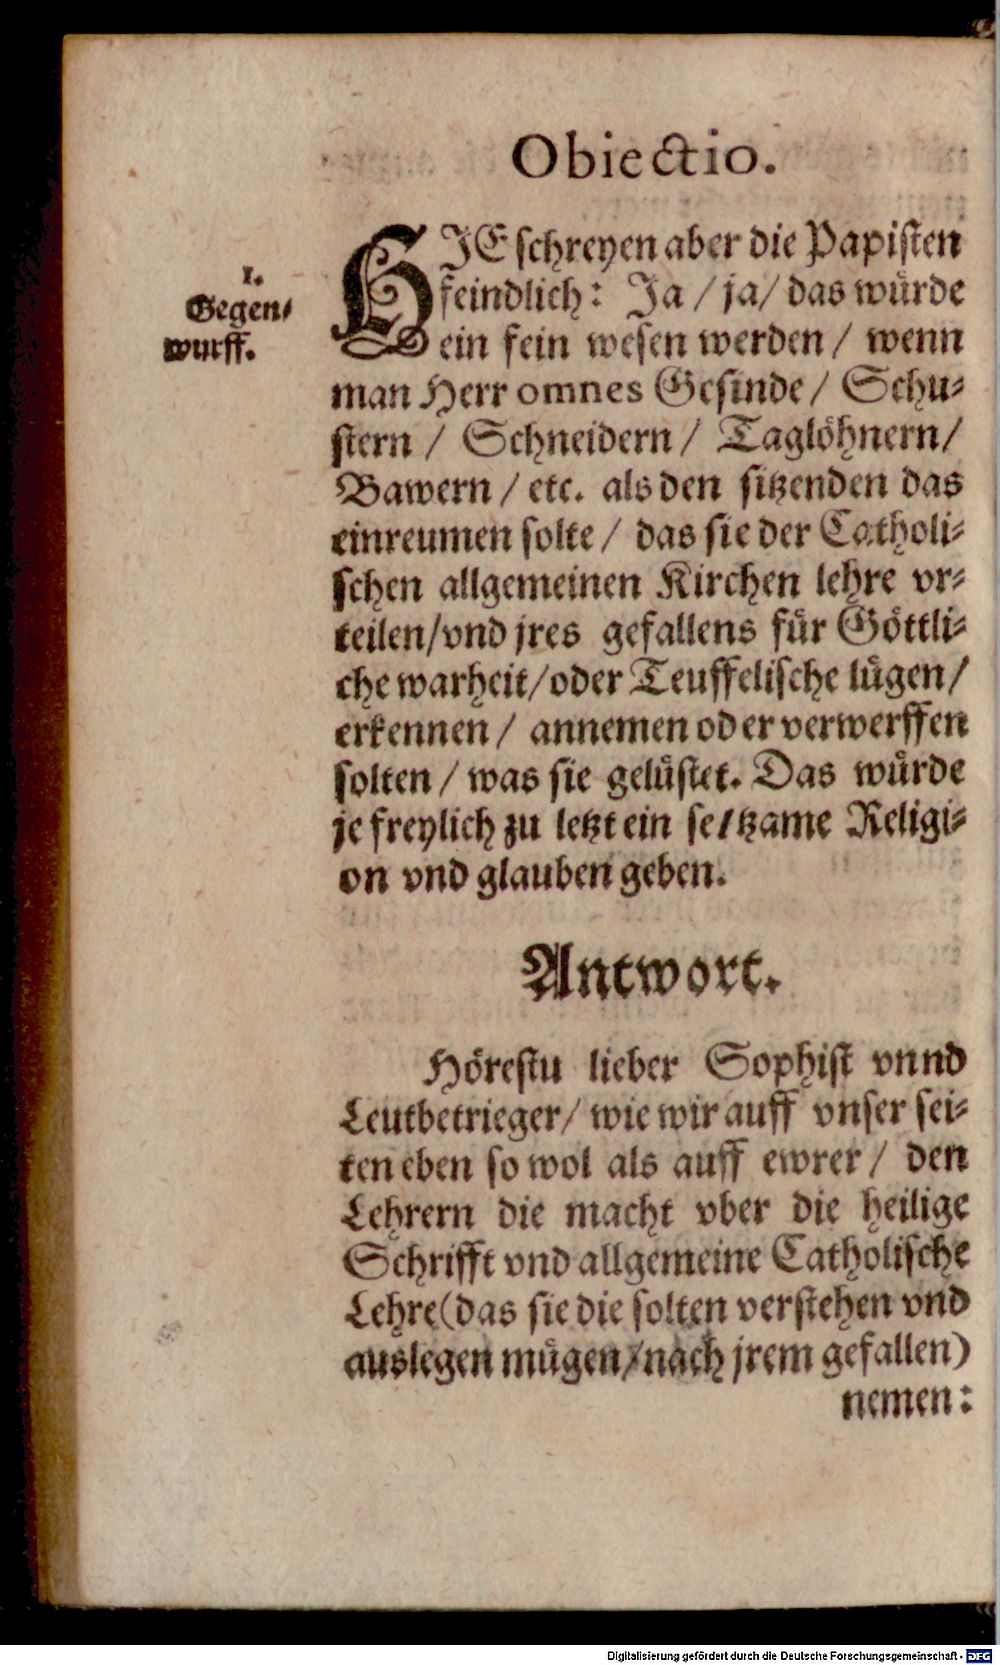 Obiectio.
1.
Gegen⸗
wurff.
HIE schreyen aber die Papisten
feindlich: Ja / ja / das würde
ein fein wesen werden / wenn
man Herr omnes Gesinde / Schu⸗
stern / Schneidern / Taglöhnern /
Bawern / etc. als den sitzenden das
einreumen solte / das sie der Catholi⸗
schen allgemeinen Kirchen lehre vr⸗
teilen / vnd jres gefallens für Göttli⸗
che warheit / oder Teuffelische lügen /
erkennen / annemen oder verwerffen
solten / was sie gelüstet. Das würde
je freylich zu letzt ein seltzame Religi⸗
on vnd glauben geben.
Antwort.
Hörestu lieber Sophist vnnd
Leutbetrieger / wie wir auff vnser sei⸗
ten eben so wol als auff ewrer / den
Lehrern die macht vber die heilige
Schrifft vnd allgemeine Catholische
Lehre (das sie die solten verstehen vnd
auslegen mügen / nach jrem gefallen)
nemen:
Digitalisierung gefördert durch die Deutsche Forschungsgemeinschaft - DFG